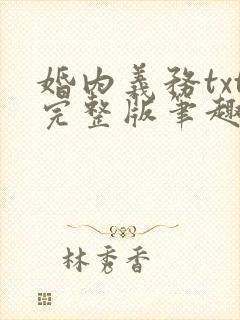 婚内義務txt
完整版筆趣
林秀香